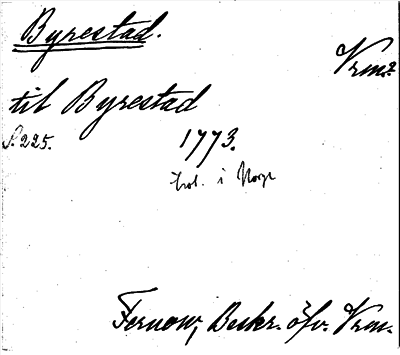 Byrestad.
Vrm?
til Byrestad
S. 225. 1773.
trol. i Norge
Fernow, Beskr. öfv. Vrm.